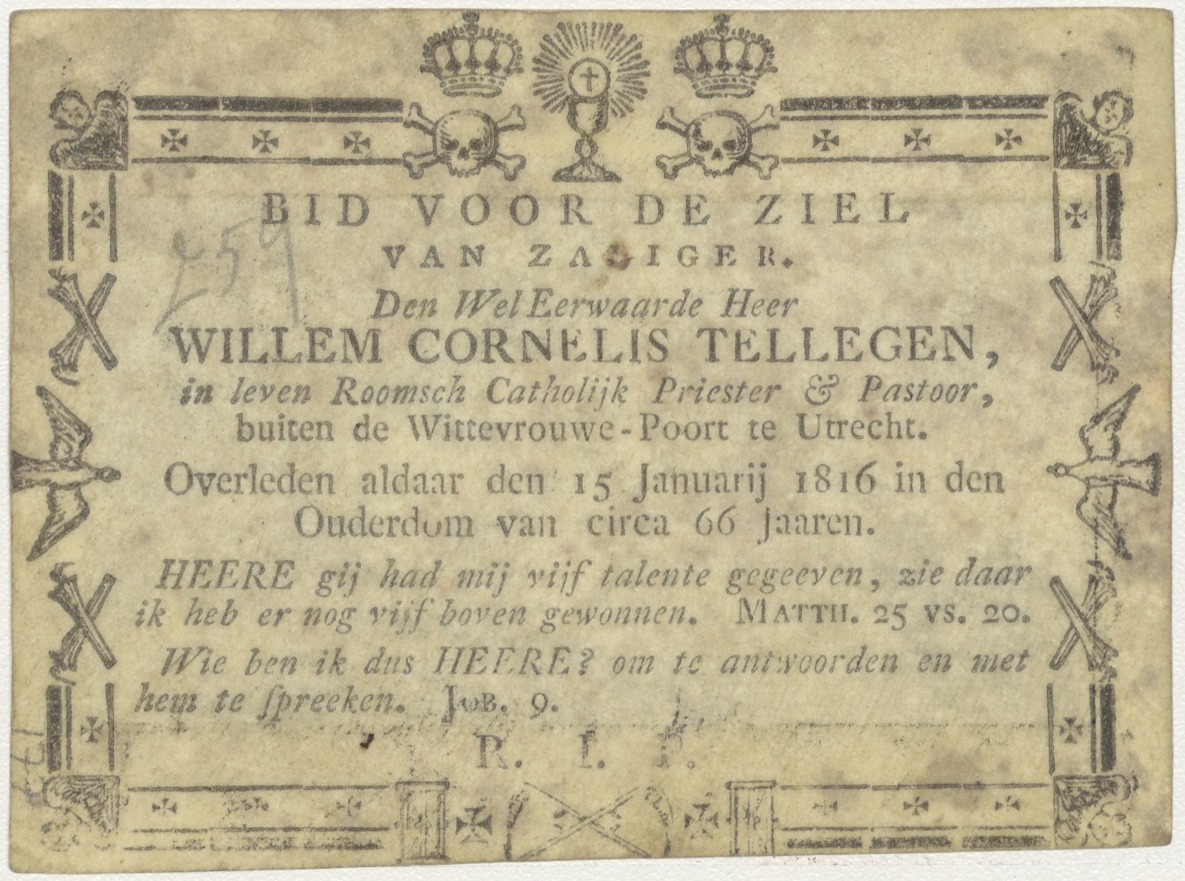 BID VOOR DE ZIEL
VAN ZALIGER.
Den WelEerwaarde Heer
WILLEM CORNELIS TELLEGEN,
in leven Roomsch Catholijk Priester & Pastoor,
buiten de Wittevrouwe-Poort te Utrecht.
Overleden aldaar den 15 Januarij 1816 in den
Ouderdom van circa 66 Jaaren.
HEERE gij had mij vijf talente gegeeven, zie daar
ik heb er nog vijf boven gewonnen. MATTH. 25 vs. 20.
Wie ben ik dus HEERE? om te antwoorden en met
hem te ſpreeken. JOB. 9.
R. I. P.